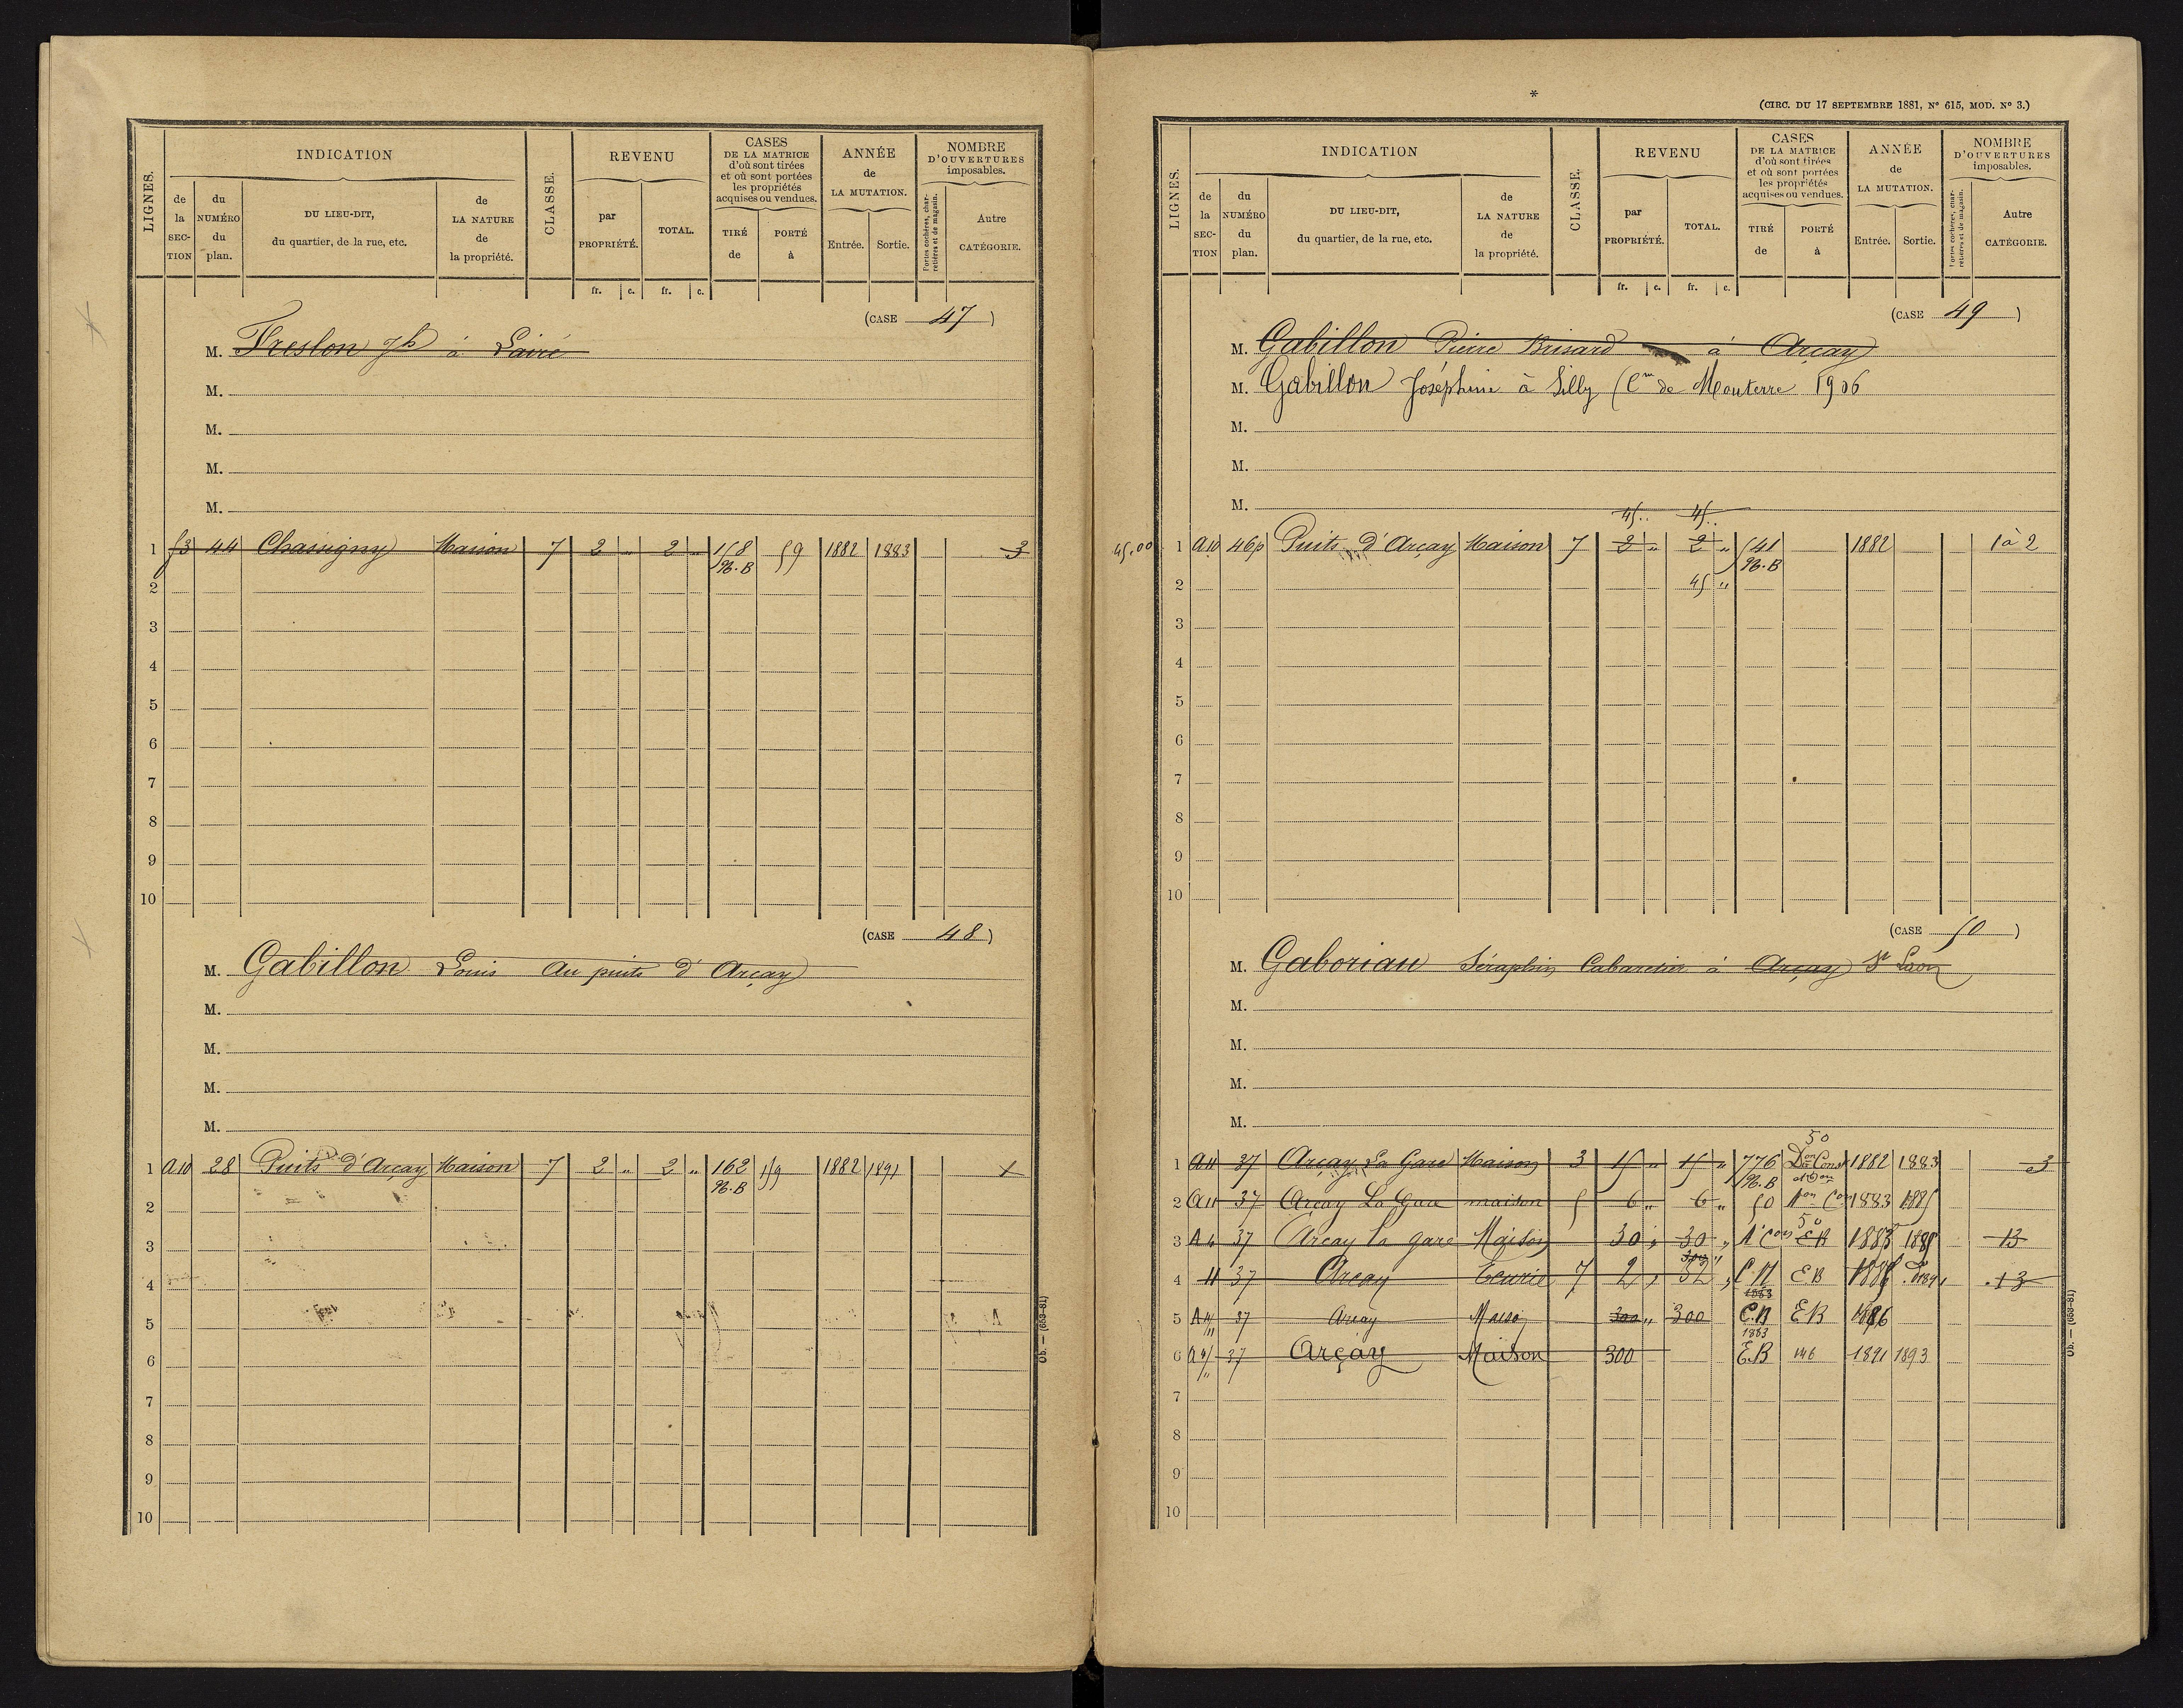 LIGNES.
INDICATION
CLASSE.
REVENU
CASES
DE LA MATRICE
d'où sont tirées
et où sont portées
les propriétés
acquises ou vendues.
ANNÉE
de
LA MUTATION.
NOMBRE
D'OUVERTURES
imposables.
de la SECTION
du NUMÉRO du plan.
DU LIEU-DIT,
du quartier, de la rue, etc.
de LA NATURE de la propriété.
par PROPRIÉTÉ.
TOTAL.
TIRÉ de
PORTÉ à
Entrée.
Sortie.
Portes cochères, charretières et de magasin.
Autre CATÉGORIE.
fr. c. fr. c.
(CASE 47)
M. Freslon Jh à Lairé
M.
M.
M.
M.
1 f3 44 Chassigny Maison 7 2 " 2 " 158 59 1882 1883 3
N.B
2
3
4
5
6
7
8
9
10
(CASE 48)
M. Gabillon Louis au puits d'Arçay
M.
M.
M.
M.
1 A10 28 Puits d'Arçay Maison 7 2 " 2 " 162 159 1882 1891 1
N.B
2
3
4
5
6
7
8
9
10
Ob. — (653-81)
*
(CIRC. DU 17 SEPTEMBRE 1881, N° 615, MOD. N° 3.)
LIGNES.
INDICATION
CLASSE.
REVENU
CASES
DE LA MATRICE
d'où sont tirées
et où sont portées
les propriétés
acquises ou vendues.
ANNÉE
de
LA MUTATION.
NOMBRE
D'OUVERTURES
imposables.
de la SECTION
du NUMÉRO du plan.
DU LIEU-DIT,
du quartier, de la rue, etc.
de LA NATURE de la propriété.
par PROPRIÉTÉ.
TOTAL.
TIRÉ de
PORTÉ à
Entrée.
Sortie.
Portes cochères, charretières et de magasin.
Autre CATÉGORIE.
fr. c. fr. c.
(CASE 49)
M. Gabillon Pierre Brisard à Arçay
M. Gabillon Joséphine à Silly (Cne de Mouterre 1906
M.
M.
M.
45.. 45..
45.00 1 A10 46p Puits d'Arçay Maison 7 2 " 2 " 541 1882 1 à 2
N.B
2 45 "
3
4
5
6
7
8
9
10
(CASE 50)
M. Gaboriau Séraphin Cabaretier à Arçay St Laon
M.
M.
M.
M.
50
1 A11 37 Arçay La Gare Maison 3 15 " 15 " 776 Don Cons 1882 1883 3
N.B
2 A11 37 Arçay La Gare maison 5 6 " 6 " 50 1883 1885
50
3 A11 37 Arçay la gare Maison 30 " 30 " EB 1883 1885 13
4 11 37 Arçay Ecurie 7 2 " 32 " C.N EB 1891 13
1883
5 A11 37 Arçay Maison 300 " 300 C.N EB 1886
1883
6 A11 37 Arçay Maison 300 E.B 146 1891 1893
7
8
9
10
Ob. — (653-81)